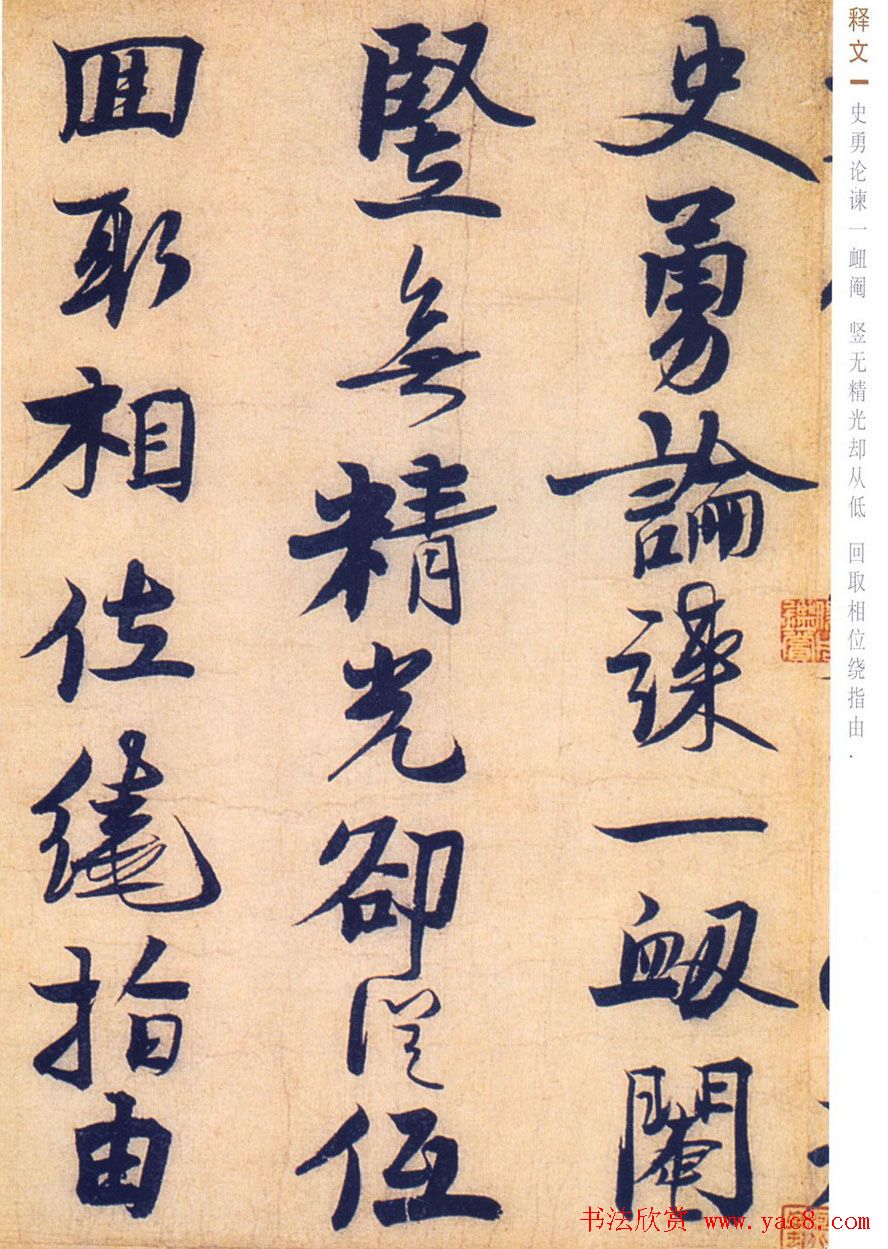 释文 史勇论谏一衄阉 竖无精光却从低 回取相位绕指由.
史勇論諫一衂閹
竪無精光卻從低
囬取相位繞指由
书法欣赏 www.yac8.com